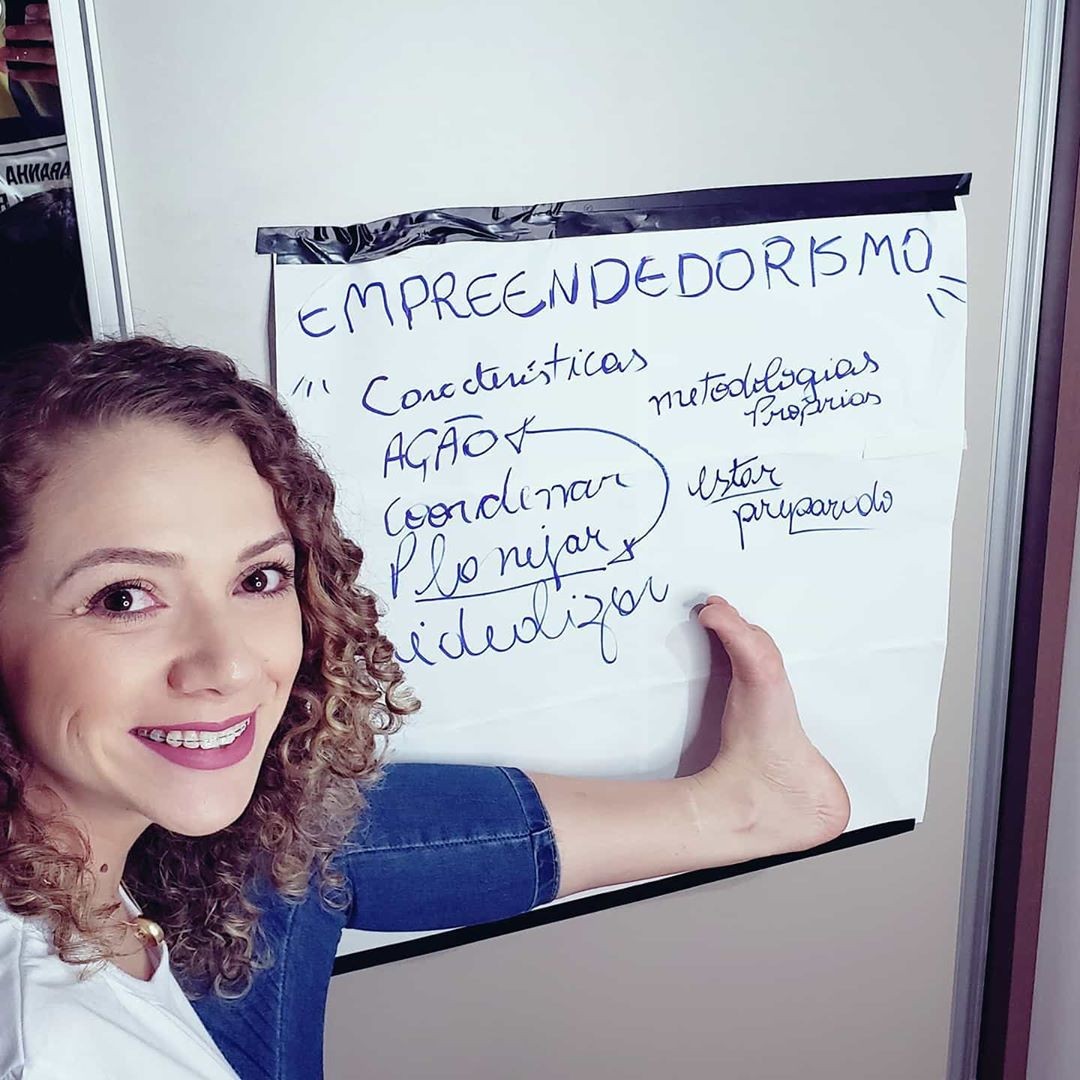 EMPREENDEDORISMO
Características
AÇÃO
coordenar
Planejar
idealizar
metodologias
Próprias
estar
preparado